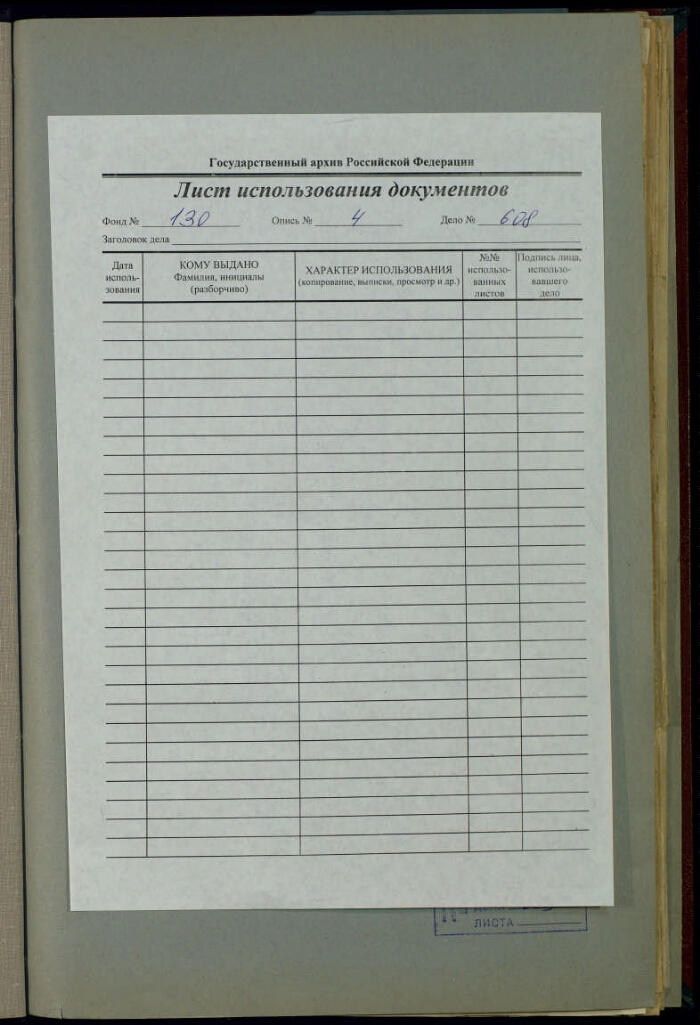 Государственный архив Российской Федерации
Лист использования документов
Фонд № 130 Опись № 4 Дело № 608
Заголовок дела
Дата
исполь-
зования
КОМУ ВЫДАНО
Фамилия, инициалы
(разборчиво)
ХАРАКТЕР ИСПОЛЬЗОВАНИЯ
(копирование, выписки, просмотр и др.)
№№
использо-
ванных
листов
Подпись лица,
использо-
вавшего
дело
ЛИСТА